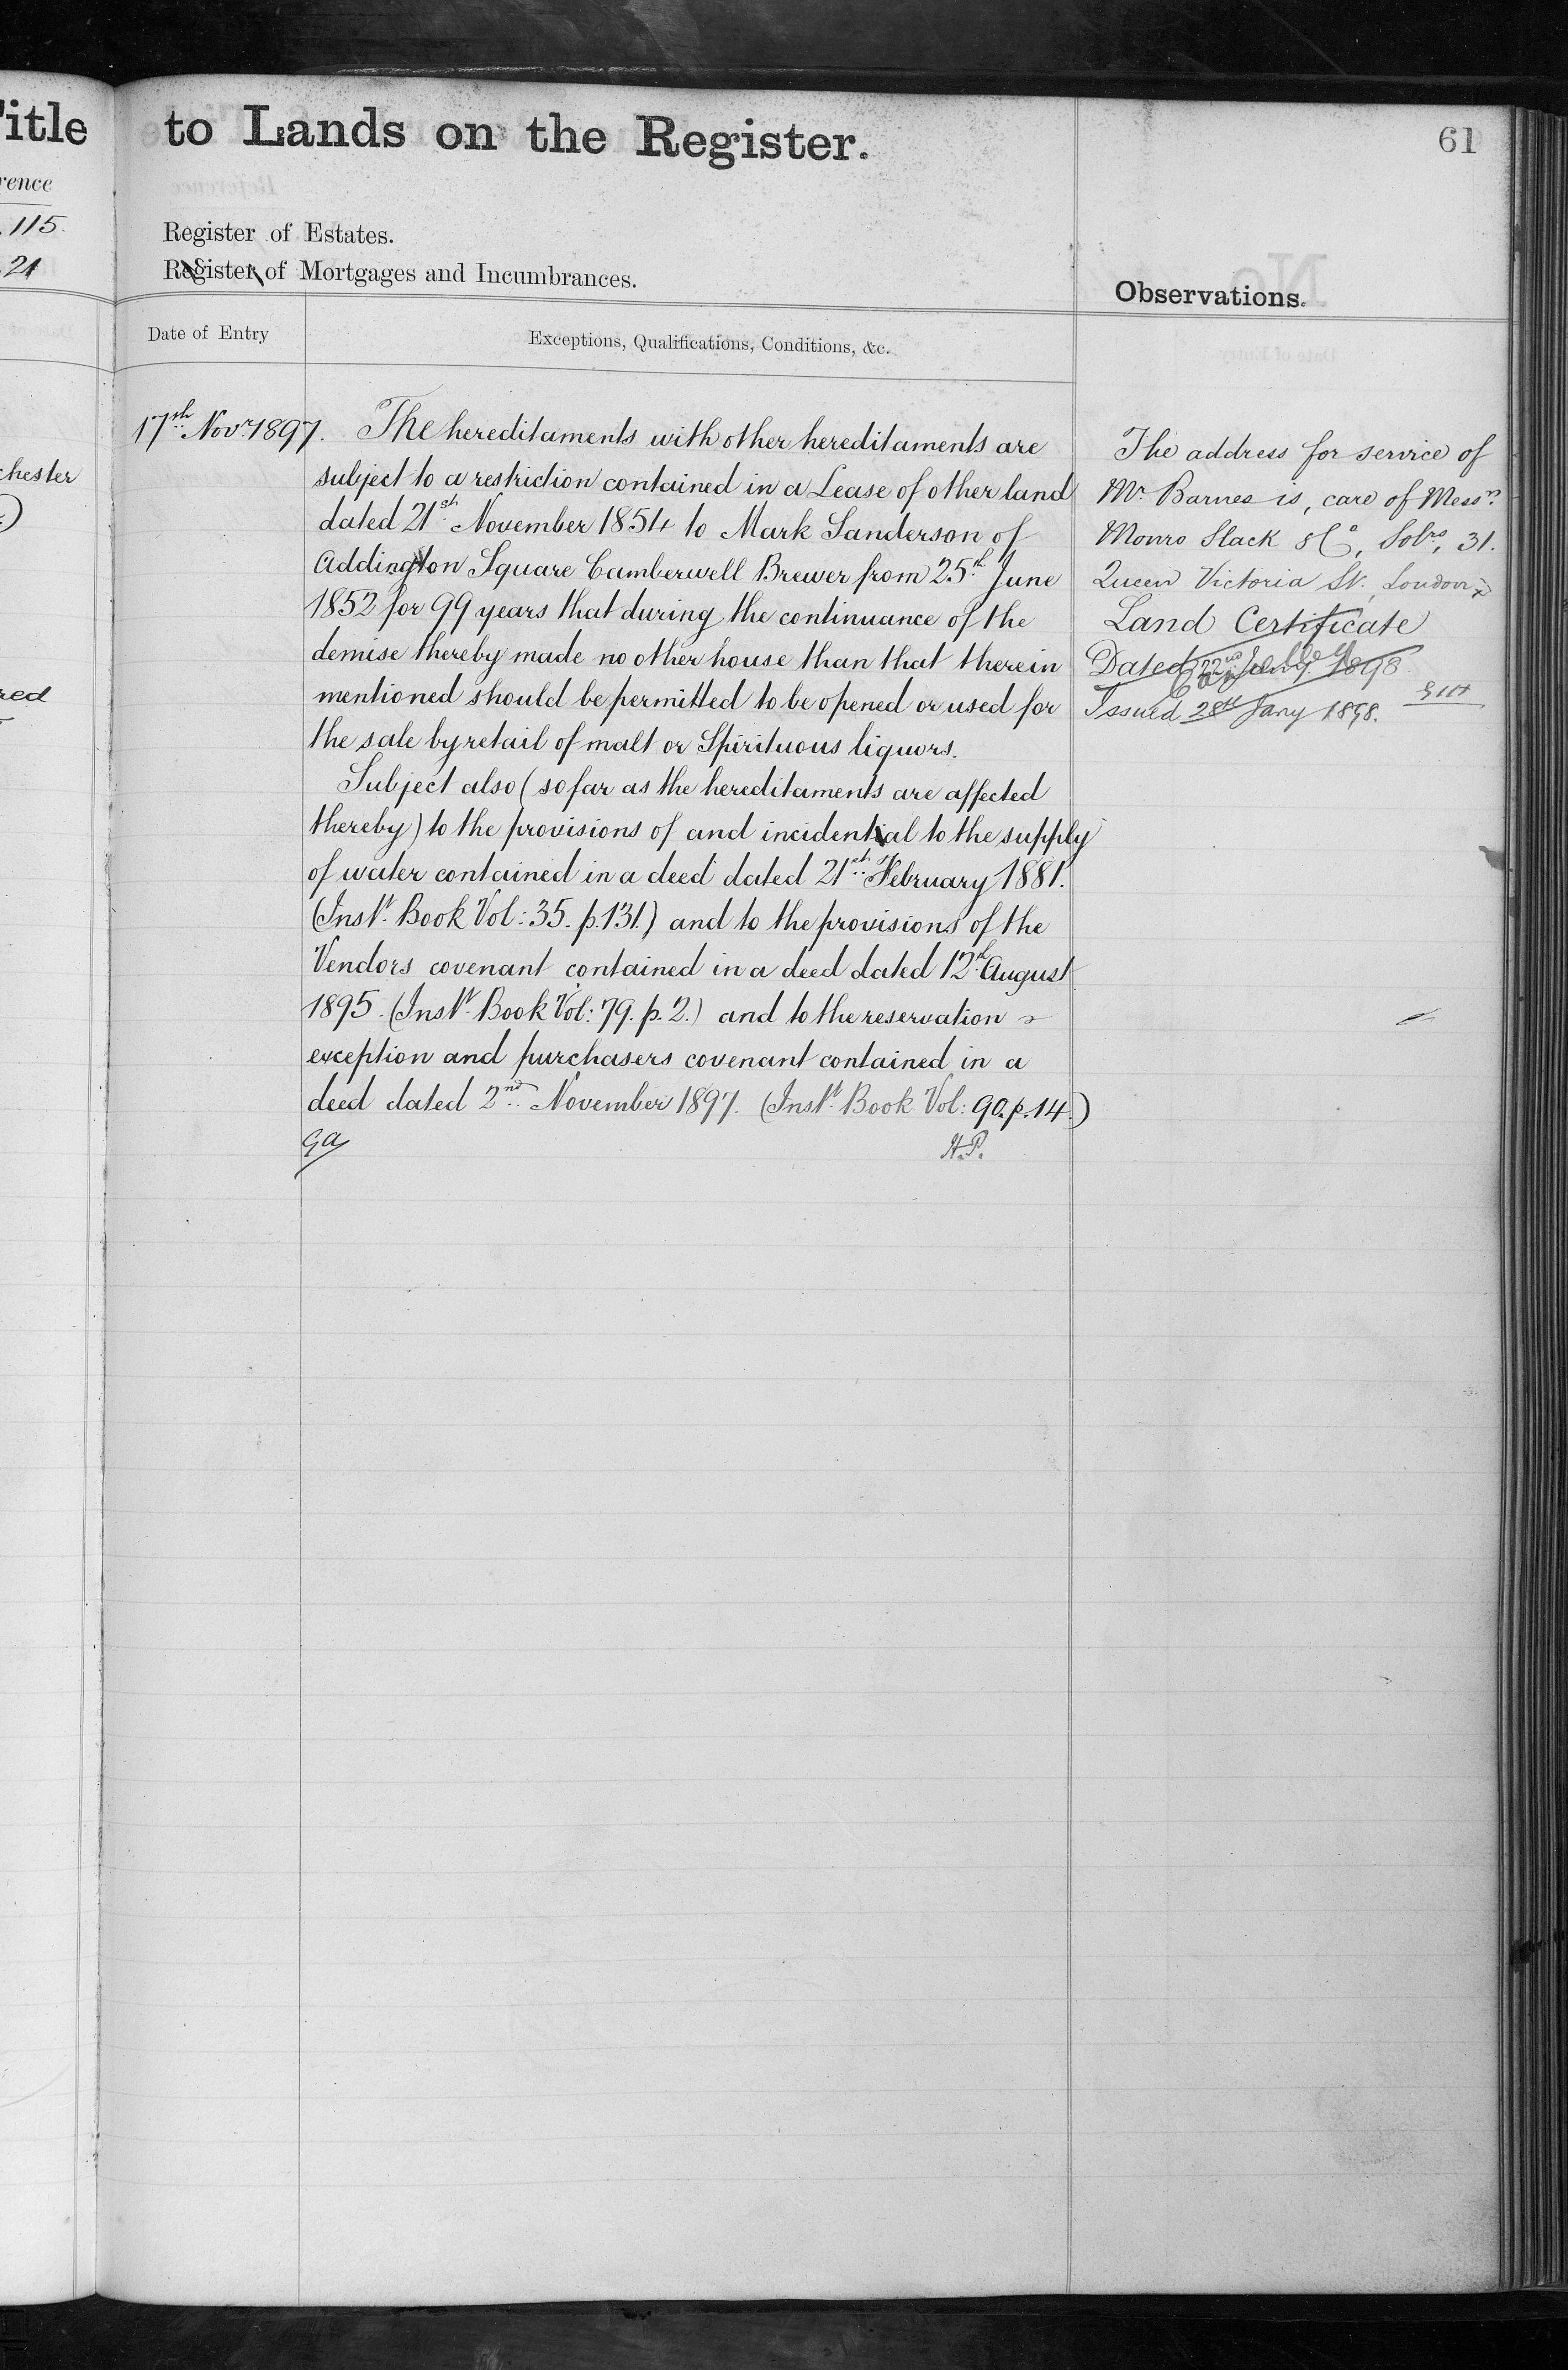 itle
rence
115.
21
chester
red
to Lands on the Register.
61
Register of Estates.
Register of Mortgages and Incumbrances.
Observations.
Date of Entry
Exceptions, Qualifications, Conditions, &c.
17th Novr 1897.
The hereditaments with other hereditaments are
subject to a restriction contained in a Lease of other land
dated 21st November 1854 to Mark Sanderson of
Addington Square Camberwell Brewer from 25th June
1852 for 99 years that during the continuance of the
demise thereby made no other house than that therein
mentioned should be permitted to be opened or used for
the sale by retail of malt or Spirituous liquors.
Subject also (so far as the hereditaments are affected
thereby) to the provisions of and incidental to the supply
of water contained in a deed dated 21st February 1881.
(Inst. Book Vol: 35. p. 131.) and to the provisions of the
Vendors covenant contained in a deed dated 12th August
1895. (Inst. Book Vol: 79. p. 2.) and to the reservation
exception and purchasers covenant contained in a
deed dated 2nd November 1897. (Inst. Book Vol: 90. p. 14.)
H.P.
The address for service of
Mr. Barnes is, care of Messrs.
Monro Slack & Co, Solrs, 31.
Queen Victoria St. London
Land Certificate
Dated 22nd Jany. 1898.
Issued 28th Jany 1898.